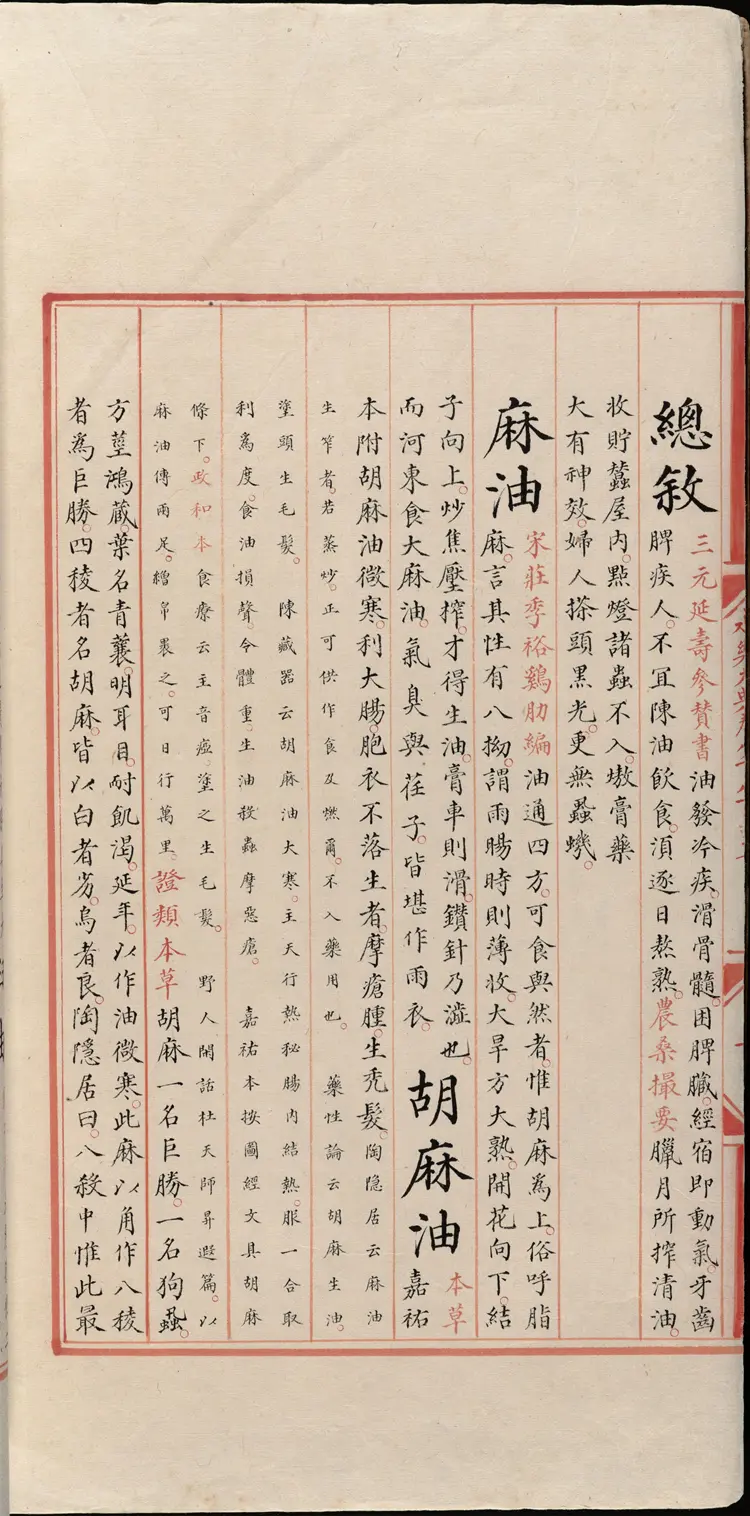 總敘
三元延壽參贊書油發冷疾。滑骨髓。困脾臟。經宿即動氣。牙齒
脾疾人。不宜陳油飲食。須逐日熬熟。農桑撮要臘月所搾清油。
收貯蠶屋內。點燈諸蟲不入。熬膏藥
大有神效。婦人搽頭黑光。更無蝨蟣。
麻油
宋莊季裕鷄肋編油通四方。可食與然者。惟胡麻為上。俗呼脂
麻。言其性有八拗。謂雨暘時則薄收。大旱方大熟。開花向下。結
子向上。炒焦壓搾。才得生油。膏車則滑。鑽針乃澁也。
而河東食大麻油。氣臭與荏子。皆堪作雨衣。
胡麻油
本草
嘉祐
本附胡麻油微寒。利大腸。胞衣不落。生者摩瘡腫。生禿髮。陶隱居云麻油
生笮者。若蒸炒。正可供作食及燃爾。不入藥用也。 藥性論云胡麻生油。
塗頭生毛髮。 陳藏器云胡麻油大寒。主天行熱秘腸內結熱。服一合取
利為度。食油損聲。令體重。生油殺蟲摩惡瘡。 嘉祐本按圖經文具胡麻
條下。政和本食療云主音瘂。塗之生毛髮。 野人閒話杜天師昇遐篇。以
麻油傅兩足。繒帛裹之。可日行萬里。證類本草胡麻一名巨勝。一名狗蝨。
方莖鴻藏。葉名青蘘。明耳目。耐飢渴。延年。以作油微寒。此麻以角作八稜
者為巨勝。四稜者名胡麻。皆以白者劣。烏者良。陶隱居曰。八穀中惟此最